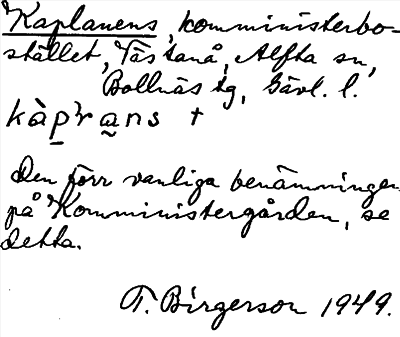 Kaplanens, kommunisterbo-
stället, Västanå, Alfta sn,
Bollnäs tg, Gävl. l.
kàp̱ra̱ns +
Den förr vanliga benämningen
på Komministergården, se
detta.
T. Birgerson 1949.